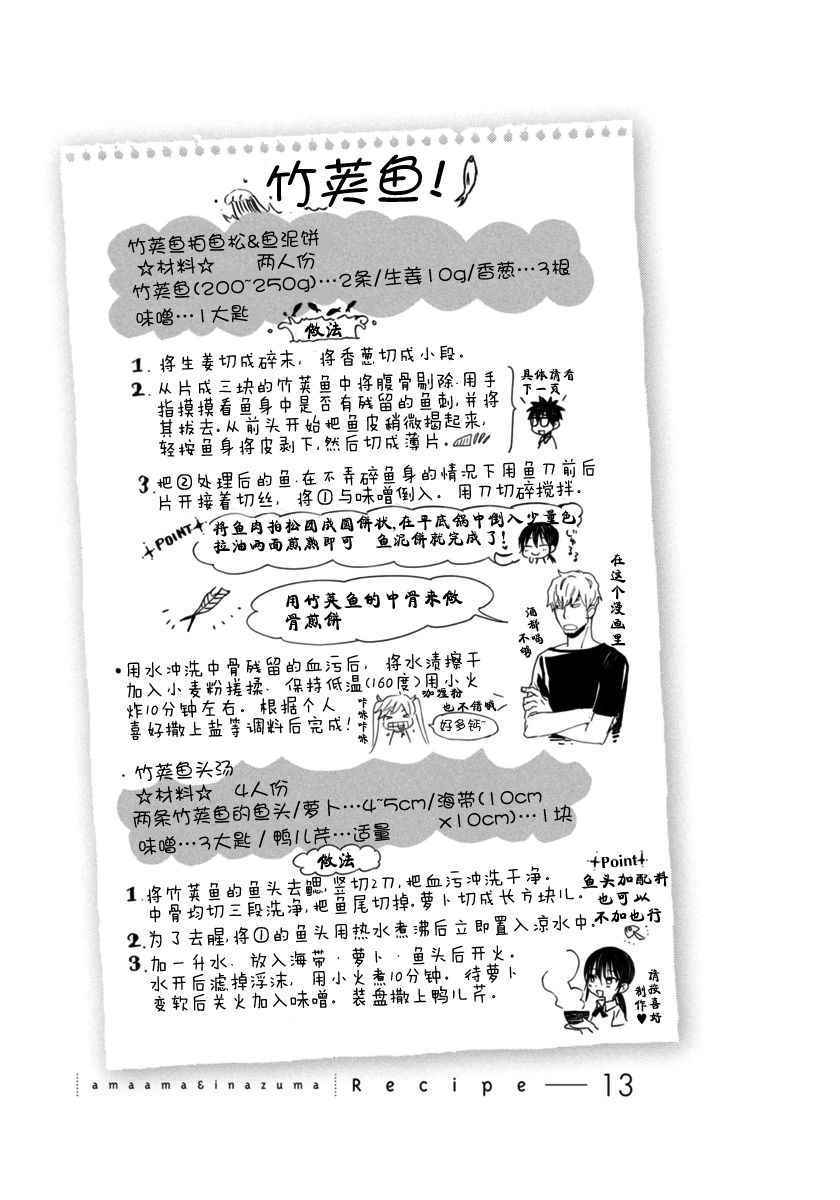 竹荚鱼！
竹荚鱼拍鱼松&鱼泥饼
☆材料☆ 两人份
竹荚鱼(200~250g)…2条/生姜10g/香葱…3根
味噌…1大匙
做法
1. 将生姜切成碎末, 将香葱切成小段。
2. 从片成三块的竹荚鱼中将腹骨剔除.用手
指摸摸看鱼身中是否有残留的鱼刺,并将
其拔去.从前头开始把鱼皮稍微揭起来,
轻按鱼身将皮剥下,然后切成薄片.
具体请看
下一页
3. 把②处理后的鱼.在不弄碎鱼身的情况下用鱼刀前后
片开接着切丝, 将①与味噌倒入. 用刀切碎搅拌.
+POINT+
将鱼肉拍松团成圆饼状,在平底锅中倒入少量色
拉油两面煎熟即可 鱼泥饼就完成了!
用竹荚鱼的中骨来做
骨煎饼
在这个漫画里
酒都喝
不吗
•用水冲洗中骨残留的血污后, 将水渍擦干
加入小麦粉搓揉. 保持低温(160度)用小火
炸10分钟左右。根据个人
喜好撒上盐等调料后完成!
咔咻咔咻
咖喱粉
也不错哦
好多钙~
·竹荚鱼头汤
☆材料☆ 4人份
两条竹荚鱼的鱼头/萝卜…4~5cm/海带(10cm
x10cm)…1块
味噌…3大匙/鸭儿芹…适量
做法
1. 将竹荚鱼的鱼头去鳃,竖切2刀,把血污冲洗干净。
中骨均切三段洗净,把鱼尾切掉.萝卜切成长方块儿.
2. 为了去腥,将①的鱼头用热水煮沸后立即置入凉水中.
3. 加一升水. 放入海带·萝卜·鱼头后开火.
水开后滤掉浮沫, 用小火煮10分钟。待萝卜
变软后关火加入味噌。装盘撒上鸭儿芹。
+Point+
鱼头加配料
也可以
不加也行
请按喜好
制作♥
amaama&inazuma
Recipe — 13